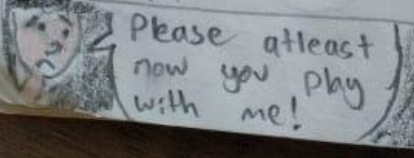 Please atleast
now you play
with me!